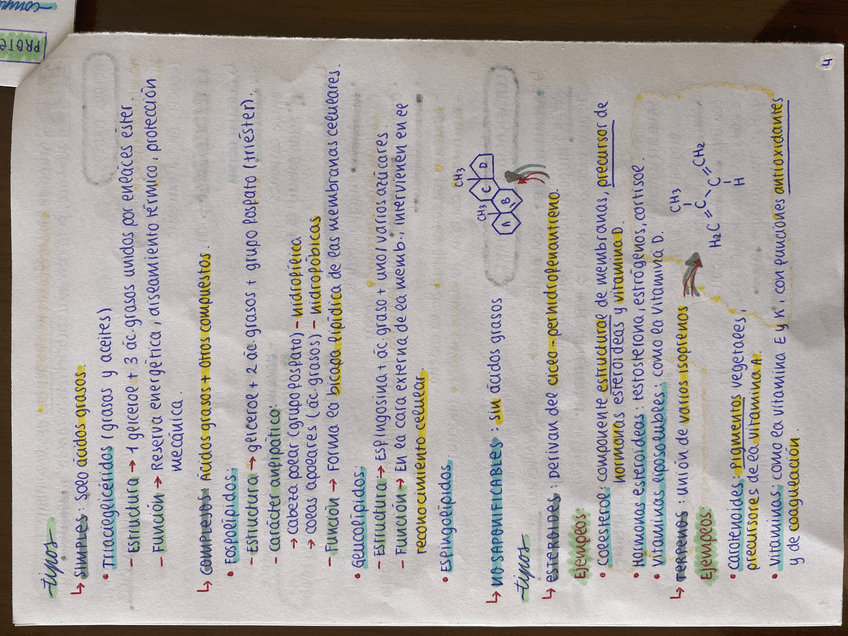 tipos
↳ SIMPLES: Solo ácidos grasos.
• Triacilglicéridos (grasas y aceites)
- Estructura → 1 glicerol + 3 ác. grasos unidos por enlaces éster.
- Función → Reserva energética, aislamiento térmico, protección
mecánica.
↳ COMPLEJOS: Ácidos grasos + otros compuestos.
• Fosfolípidos:
- Estructura → glicerol + 2 ác. grasos + grupo fosfato (triéster).
- carácter anfipático:
→ cabeza polar (grupo fosfato) - hidrofílica
→ colas apolares (ác. grasos) - hidrofóbicas
- Función → Forma la bicapa lipídica de las membranas celulares.
• Glucolípidos:
- Estructura → Esfingosina + ác. graso + uno/varios azúcares
- Función → En la cara externa de la memb., intervienen en el
reconocimiento celular.
• Esfingolípidos
↳ NO SAPONIFICABLES: sin ácidos grasos
- tipos
↳ ESTEROIDES: Derivan del ciclo-perhidrofenantreno.
CH₃
CH₃
A B C D
Ejemplos
• Colesterol: componente estructural de membranas, precursor de
hormonas esteroideas y vitamina D.
• Hormonas esteroideas: testosterona, estrógenos, cortisol.
• Vitaminas liposolubles: como la vitamina D.
↳ TERPENOS: unión de varios isoprenos
CH₃
H₂C = C - C = CH₂
H
Ejemplos
• carotenoides: Pigmentos vegetales,
precursores de la vitamina A.
• Vitaminas: como la vitamina E y K, con funciones antioxidantes
y de coagulación.
4
PROTE